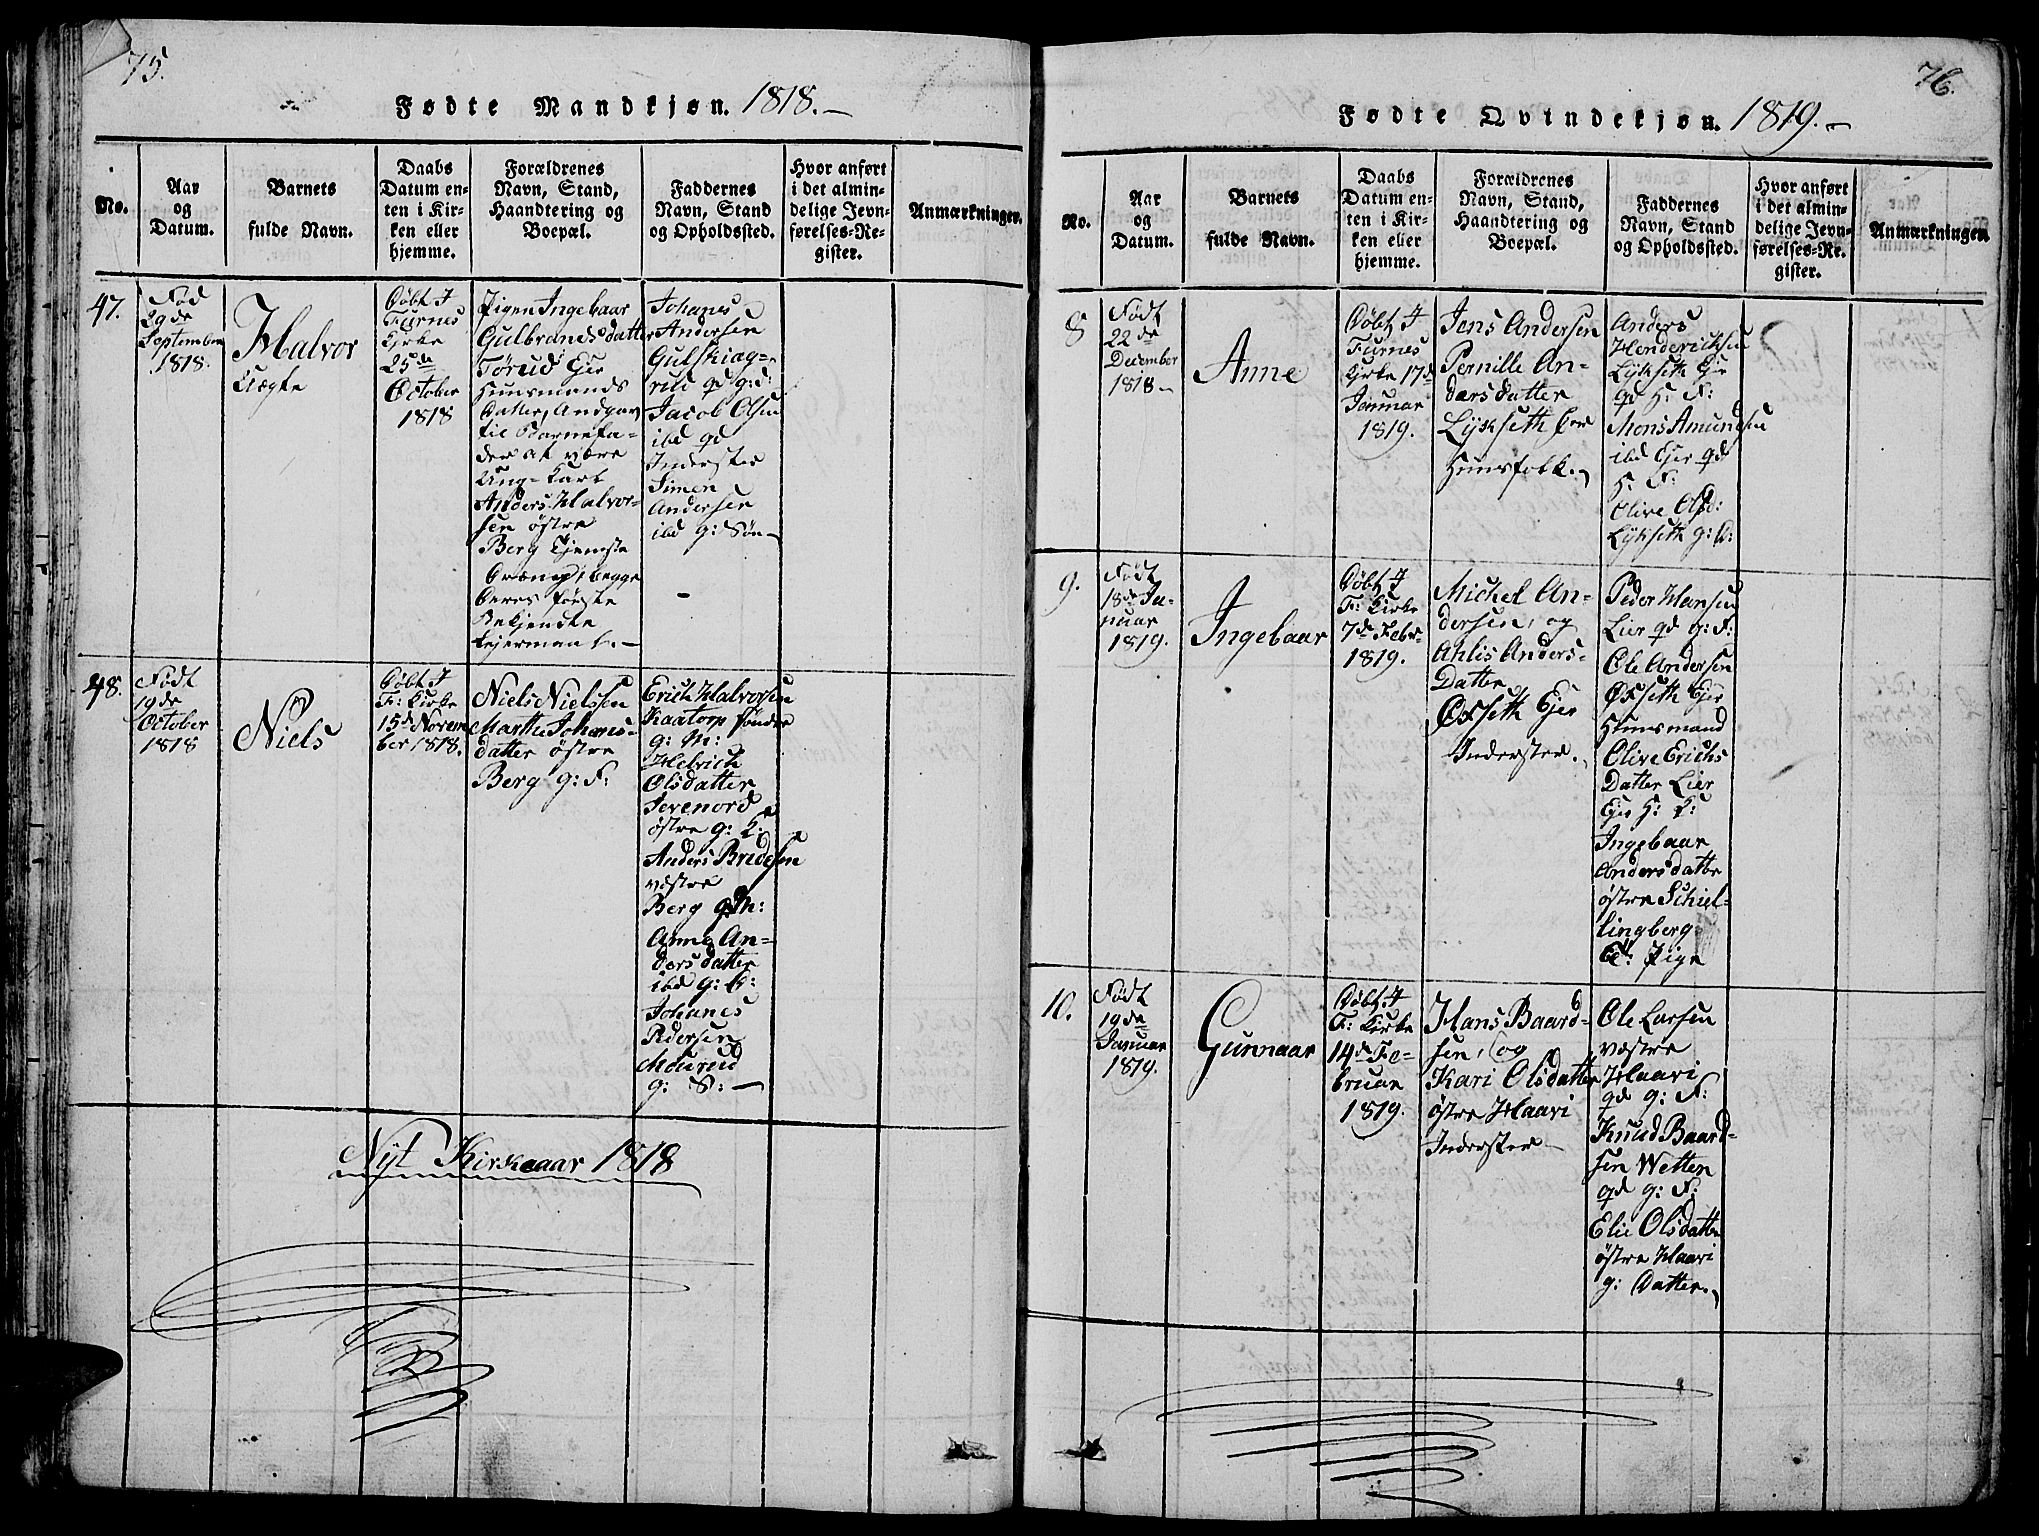 75.
Fødte Mandkjøn. 1818.
No.
Aar
og
Datum.
Barnets
fulde Navn.
Daabs
Datum en-
ten i Kir-
ken eller
hjemme.
Forældrenes
Navn, Stand,
Haandtering og
Boepæl.
Faddernes
Navn, Stand
og Opholdssted.
Hvor anført
i det almin-
delige Jevn-
førelses-Re-
gister.
Anmærkninger.
47.
Fød
29de
September
1818.
Halvor
Uægte
Døbt I
Furnes
Kirke
25de
October
1818
Pigen Ingebaar
Gulbrandsdatter
Tørud Eier
Huusmands
Datter, Andgav
til Barnefa-
der at være
Ung-Karl
Anders Halvor-
sen østre
Berg Tjeneste
Dræng, begge
Deres første
Bekjendte
Lejermaal.
Johans
Andersen
Gulskiag-
rud gd g: d:
Jacob Olsen
ibd gd
Inderster
Simen
Andersen
ibd g: Søn
48.
Født
19de
October
1818
Niels
Døbt I
F: Kirke
15de Novem
ber 1818.
Niels Nielssen
Marthe Johans-
datter østre
Berg g: F:
Erich Halvorsen
Kaatorp søndre
g: M:
Helvich
Olsdatter
Jevenord
østre g: K:
Anders Bredesen
væstre
Berg g: M:
Anne An-
dersdatter
ibd g: K:
Johanes
Pedersen
Mourud
g: S:
Nyt Kirkeaar 1818
76.
Fødte Qvindekjøn. 1819.
No.
Aar
og
Datum.
Barnets
fulde Navn.
Daabs
Datum en-
ten i Kir-
ken eller
hjemme.
Forældrenes
Navn, Stand,
Haandtering og
Boepæl.
Faddernes
Navn, Stand
og Opholdssted.
Hvor anført
i det almin-
delige Jevn-
førelses-Re-
gister.
Anmærkninger.
8
Født
22de
December
1818
Anne
Døbt I
Furnes
Kirke 17de
Januar
1819.
Jens Andersen
Pernille An-
dersdatter
Lykseth Eier
Huusfolk.
Anders
Henderichsen
Lykseth Eje
gd H: F:
Mons Amundsen
ibd Ejer gd
H: F:
Olive Olsd:
Lykseth g: D:
9.
Født
18de Ja-
nuar
1819.
Ingebaar
Døbt I
F: Kirke
7de Febr
1819.
Michel An-
dersen, og
Ahlis Anders-
Datter
Oxseth Ejer
Inderster.
Peder Hansen
Lier gd g: F:
Ole Andersen
Oxseth Ejer
Huusmand
Olive Erichs
Datter Lier
Eje H: K:
Ingebaar
Andersdatter
østre Schiel-
lingberg
Pige
10.
Født
19de
Januar
1819.
Gunnaar
Døbt I
F: Kirke
14de Fe-
bruar
1819.
Hans Baard-
sen, og
Kari Olsdatter
østre Haavi
Inderster
Ole Larsen
væstre
Haavi
gd g: F:
Knud Baard-
sen Wetten
gd g: F:
Elie Olsdatter
østre Haavi
g: Datter.